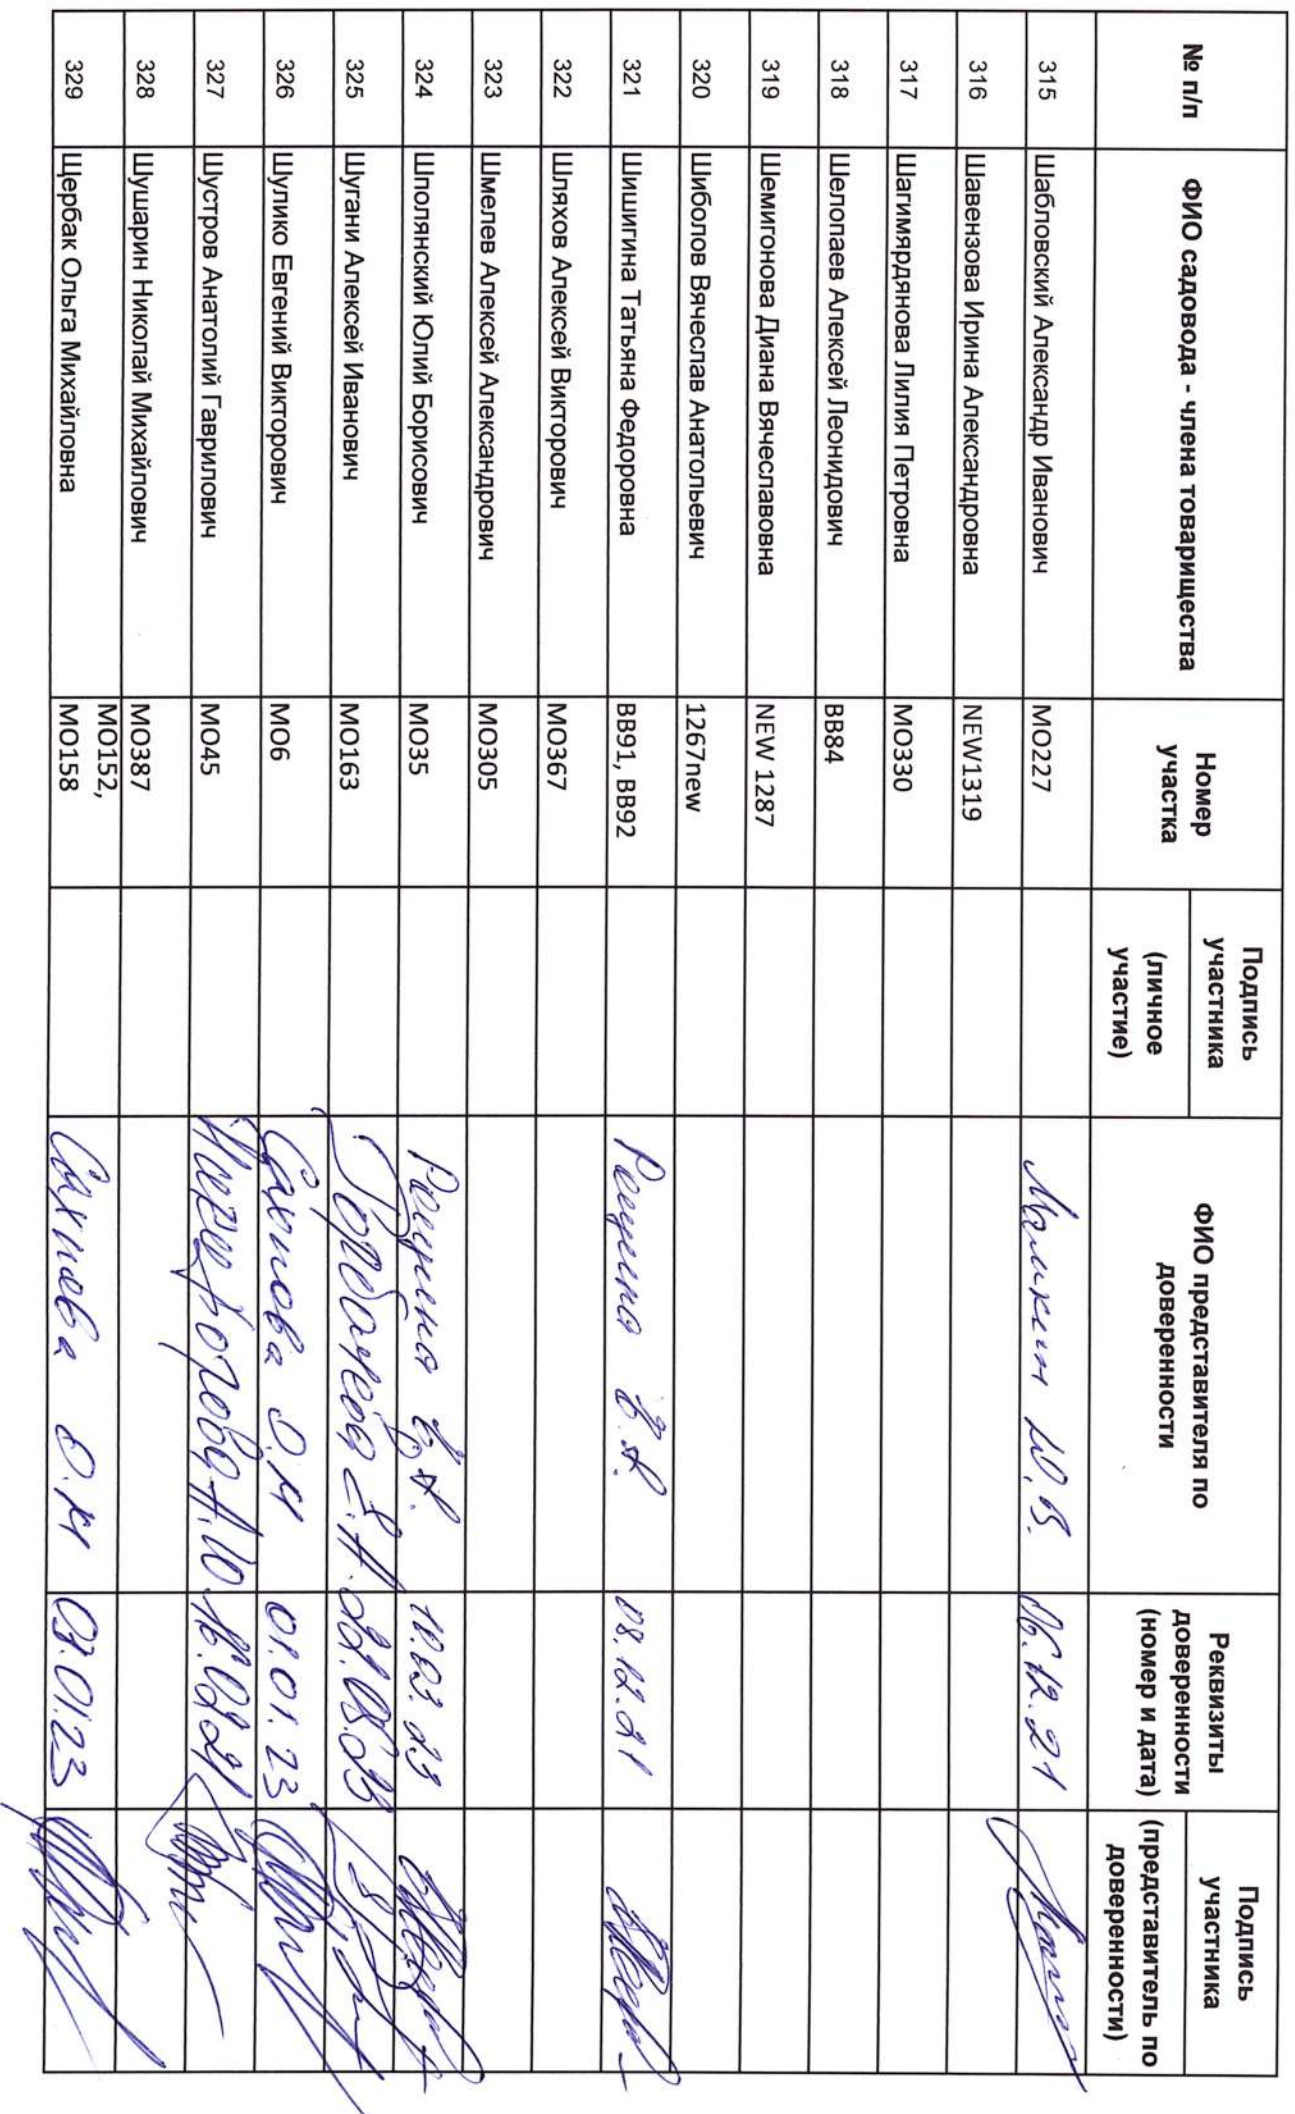 № п/п ФИО садовода - члена товарищества Номер участка Подпись участника (личное участие) ФИО представителя по доверенности Реквизиты доверенности (номер и дата) Подпись участника (представитель по доверенности)
315 Шабловский Александр Иванович МО227 Маликин Ю.В. 06.12.21
316 Шавензова Ирина Александровна NEW1319
317 Шагимярдянова Лилия Петровна МО330
318 Шелопаев Алексей Леонидович ВВ84
319 Шемигонова Диана Вячеславовна NEW 1287
320 Шиболов Вячеслав Анатольевич 1267new
321 Шишигина Татьяна Федоровна ВВ91, ВВ92 08.12.21
322 Шляхов Алексей Викторович МО367
323 Шмелев Алексей Александрович МО305
324 Шполянский Юлий Борисович МО35 10.03.23
325 Шугани Алексей Иванович МО163
326 Шулико Евгений Викторович МО6 О.М 01.01.23
327 Шустров Анатолий Гаврилович МО45
328 Шушарин Николай Михайлович МО387
329 Щербак Ольга Михайловна МО152, МО158 О.М 03.01.23